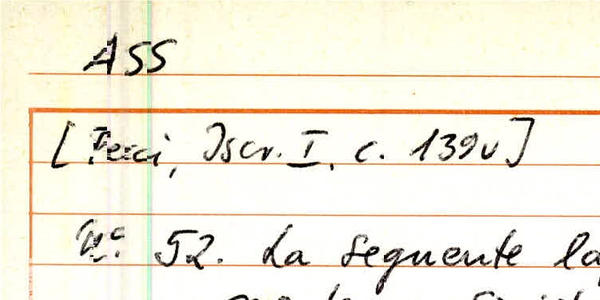 ASS
[Pecci, Iscr. I, c. 139v]
N° 52. La seguente